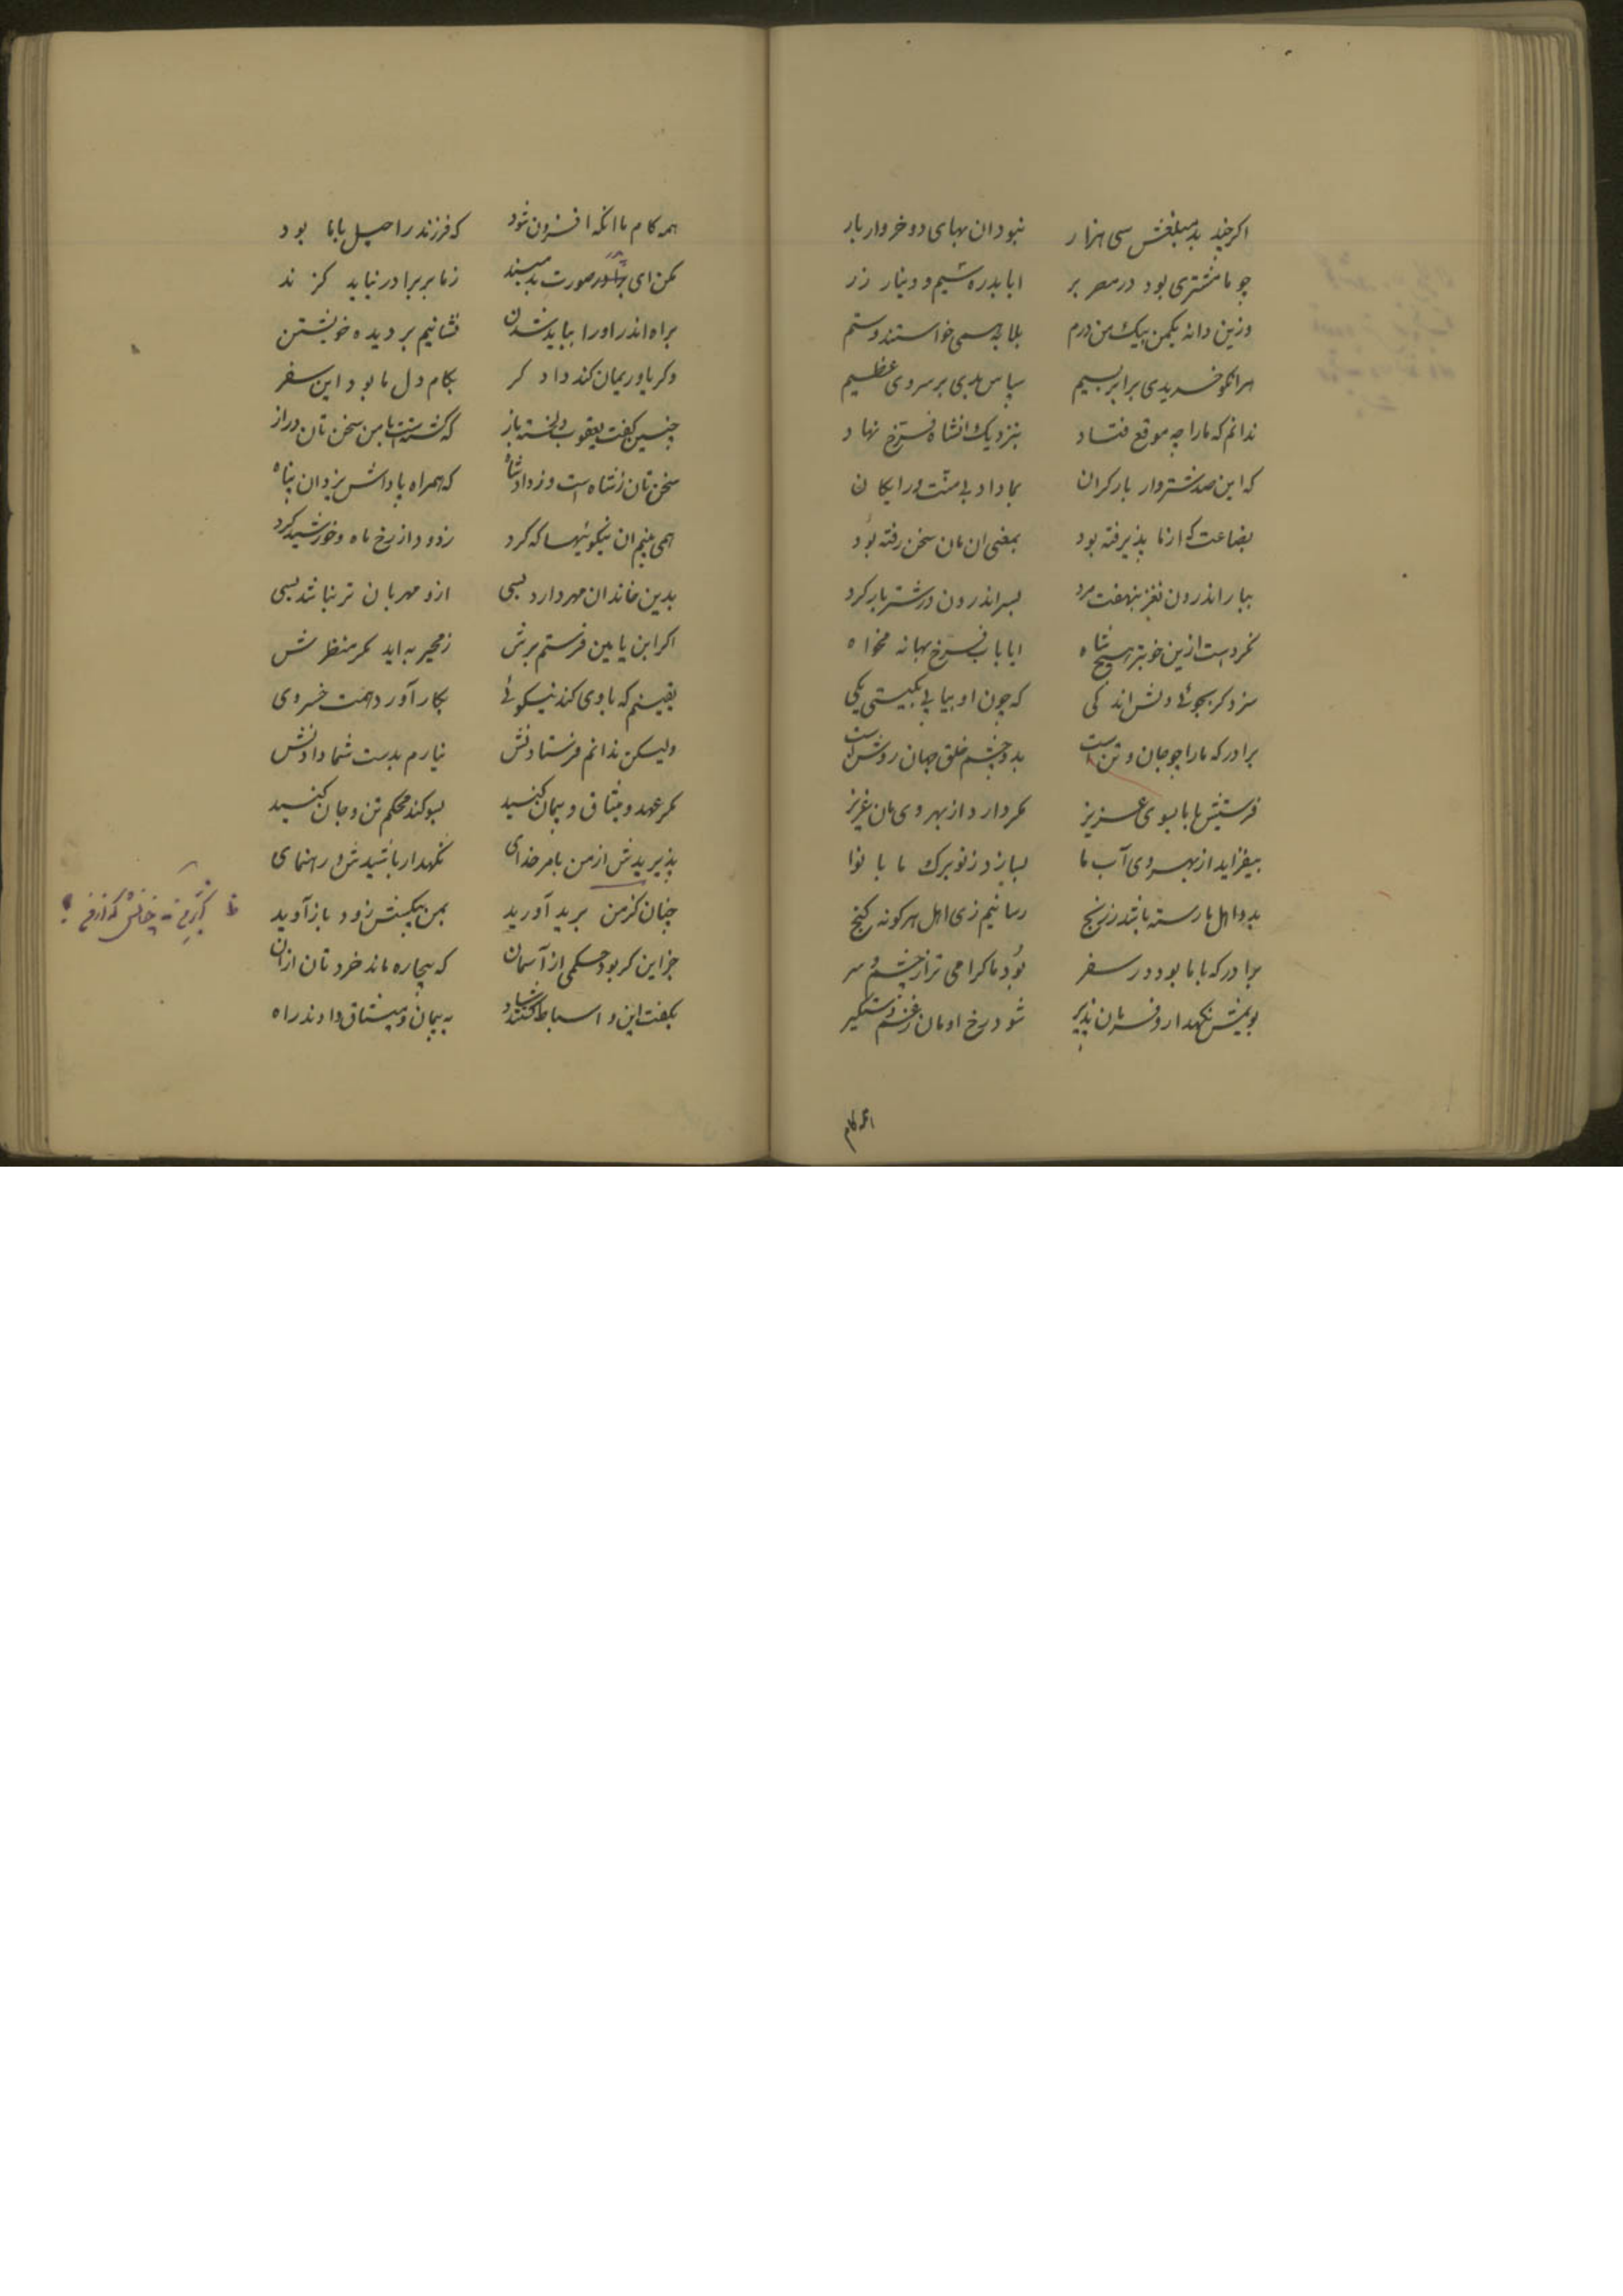 اگر چند بد مبلغش سی هزار نبود ان بهای دو خروار بار
چو ما مشتری بود در مصر بر ابا بدره سیم و دینار زر
وزین دانه یکمن بیک من درم بلابه همی خواستند و ستم
هرانکو خریدی برابر بسیم سپاس بدی بر سر وی عظیم
ندانم که ما را چه موقع فتاد بنزدیک انشاه فرّخ نهاد
که این صد شتروار بار کران بما داد بی منّت و رایکان
بضاعت که از ما پذیرفته بود بمعنی ان مان سخن رفته بود
ببار اندرون نغز بنهفت مرد بسر اندرون در شتر بار کرد
نکردست ازین خوبتر هیچ شاه ایا باب فرّخ بهانه مخواه
سزد کر بجوئی دلش اندکی که چون او نیابی بکیتی یکی
برادر که ما را چو جان و تن است بدو چشم خلق جهان روشن است
فرستیش با ما بسوی عزیز مکر دارد از بهر وی مان عزیز
بیفزاید از بهر وی آب ما بسازد ز نو برک ما با نوا
بدو اهل ما رسته باشد ز رنج رسانیم زی اهل هر کونه کنج
برادر که با ما بود در سفر بُود ما کرامی تر از چشم و سر
بویمش نکهدار و فرمان پذیر شود رخ او مان ز غم دستکیر
همه کام
همه کام ما انکه افزون شود که فرزند راحیل با ما بود
مکن ای پدر صورت بد مبند ز ما بر برادر نیاید کزند
براه اندر او را بباید شدن نشانیم بر دیده خویشتن
وکر یاوریمان کند دادکر بکام دل ما بود این سفر
چنین کفت یعقوب دلخسته باز که کشتست با من سخن تان دراز
سخن تان ز شاه است وز داد شاه که همراه پاداش یزدان پناه
همی بینم ان نیکوئیها که کرد زدود از رخ ماه و خورشید کرد
بدین خاندان مهر دارد بسی ازو مهربان تر نباشد کسی
اکر ابن یامین فرستم برش
یقینم که با وی کند نیکوئی بکار آورد همت خسروی
ولیکن ندانم فرستادنش نیارم بدست شما دادنش
مکر عهد و میثاق و پیمان کنید بسوکند محکم تن و جان کنید
پذیریدش از من بامر خدای نکهدار باشیدش و رهنمای
چنان کز من برید آورید بمن بیکنش زود باز آورید
جز این کر بود حکمی از آسمان که بیچاره ماند خرد تان ازان
بکفت این و اسباط کشتند شاد به پیمان و میثاق دادند راه